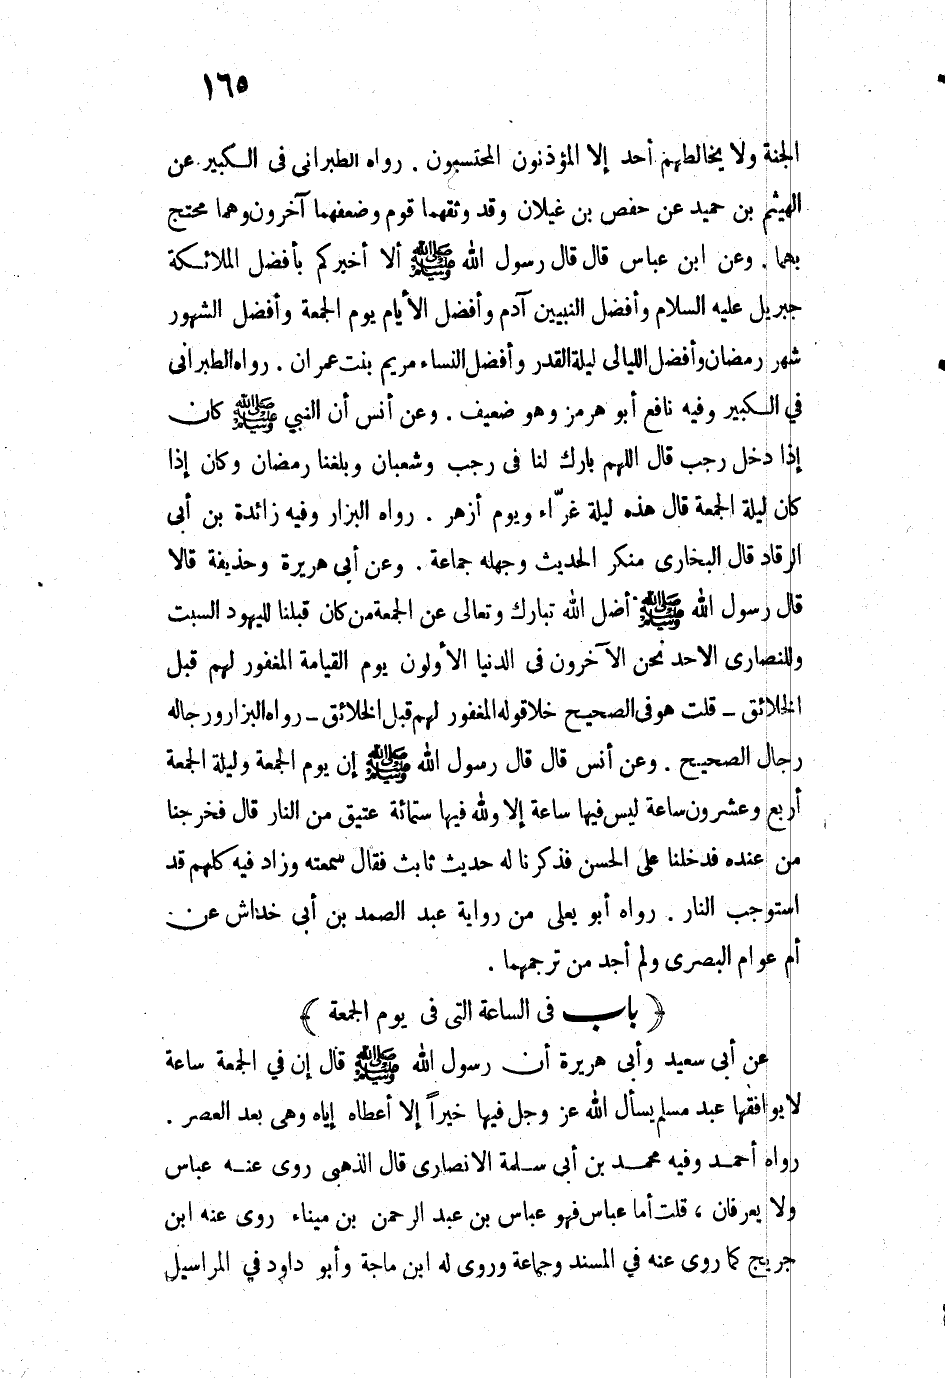 ١٦٥
الجنة ولا يخالطهم أحد إلا المؤذنون المحتسبون . رواه الطبرانى فى الكبير عن
الهيثم بن حميد عن حفص بن غيلان وقد وثقهما قوم وضعفهما آخرون وهما محتج
بهما . وعن ابن عباس قال قال رسول الله ﷺ ألا أخبركم بأفضل الملائكة
جبريل عليه السلام وأفضل النبيين آدم وأفضل الأيام يوم الجمعة وأفضل الشهور
شهر رمضان وأفضل الليالى ليلة القدر وأفضل النساء مريم بنت عمران . رواه الطبرانى
في الكبير وفيه نافع أبو هرمز وهو ضعيف . وعن أنس أن النبي ﷺ كان
إذا دخل رجب قال اللهم بارك لنا فى رجب وشعبان وبلغنا رمضان وكان إذا
كان ليلة الجمعة قال هذه ليلة غرّاء ويوم أزهر . رواه البزار وفيه زائدة بن أبى
الرقاد قال البخارى منكر الحديث وجهله جماعة . وعن أبى هريرة وحذيفة قالا
قال رسول الله ﷺ أضل الله تبارك وتعالى عن الجمعة من كان قبلنا لليهود السبت
وللنصارى الاحد نحن الآخرون فى الدنيا الأولون يوم القيامة المغفور لهم قبل
الخلائق - قلت هو فى الصحيح خلا قوله المغفور لهم قبل الخلائق - رواه البزار ورجاله
رجال الصحيح . وعن أنس قال قال رسول الله ﷺ إن يوم الجمعة وليلة الجمعة
أربع وعشرون ساعة ليس فيها ساعة إلا ولله فيها ستمائة عتيق من النار قال فخرجنا
من عنده فدخلنا على الحسن فذكرنا له حديث ثابت فقال سمعته وزاد فيه كلهم قد
استوجب النار . رواه أبو يعلى من رواية عبد الصمد بن أبى خداش عن
أم عوام البصرى ولم أجد من ترجمهما .
﴿ باب فى الساعة التى فى يوم الجمعة ﴾
عن أبى سعيد وأبى هريرة أن رسول الله ﷺ قال إن في الجمعة ساعة
لا يوافقها عبد مسلم يسأل الله عز وجل فيها خيراً إلا أعطاه إياه وهى بعد العصر .
رواه أحمد وفيه محمد بن أبى سلمة الانصارى قال الذهبى روى عنه عباس
ولا يعرفان ، قلت أما عباس فهو عباس بن عبد الرحمن بن ميناء روى عنه ابن
جريج كما روى عنه في المسند وجماعة وروى له ابن ماجة وأبو داود في المراسيل